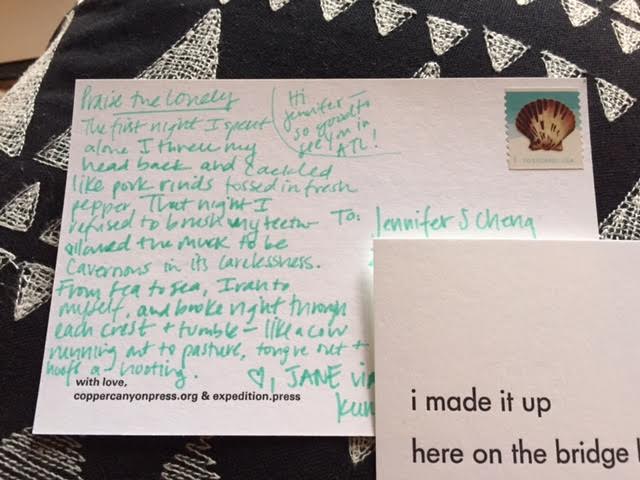 Praise the Lonely
Hi
Jennifer —
so good to
see you in
ATL!
The first night I spent
alone I threw my
head back and cackled
like pork rinds tossed in fresh
pepper. That night I
refused to brush my teeth
allowed the muck to be
cavernous in its carelessness.
From tea to sea, I ran to
myself, and broke right through
each crest + tumble — like a cow
running out to pasture, tongue out +
hoofs a-hooting.
♡, JANE via
To: Jennifer S Cheng
with love,
coppercanyonpress.org & expedition.press
i made it up
here on the bridge